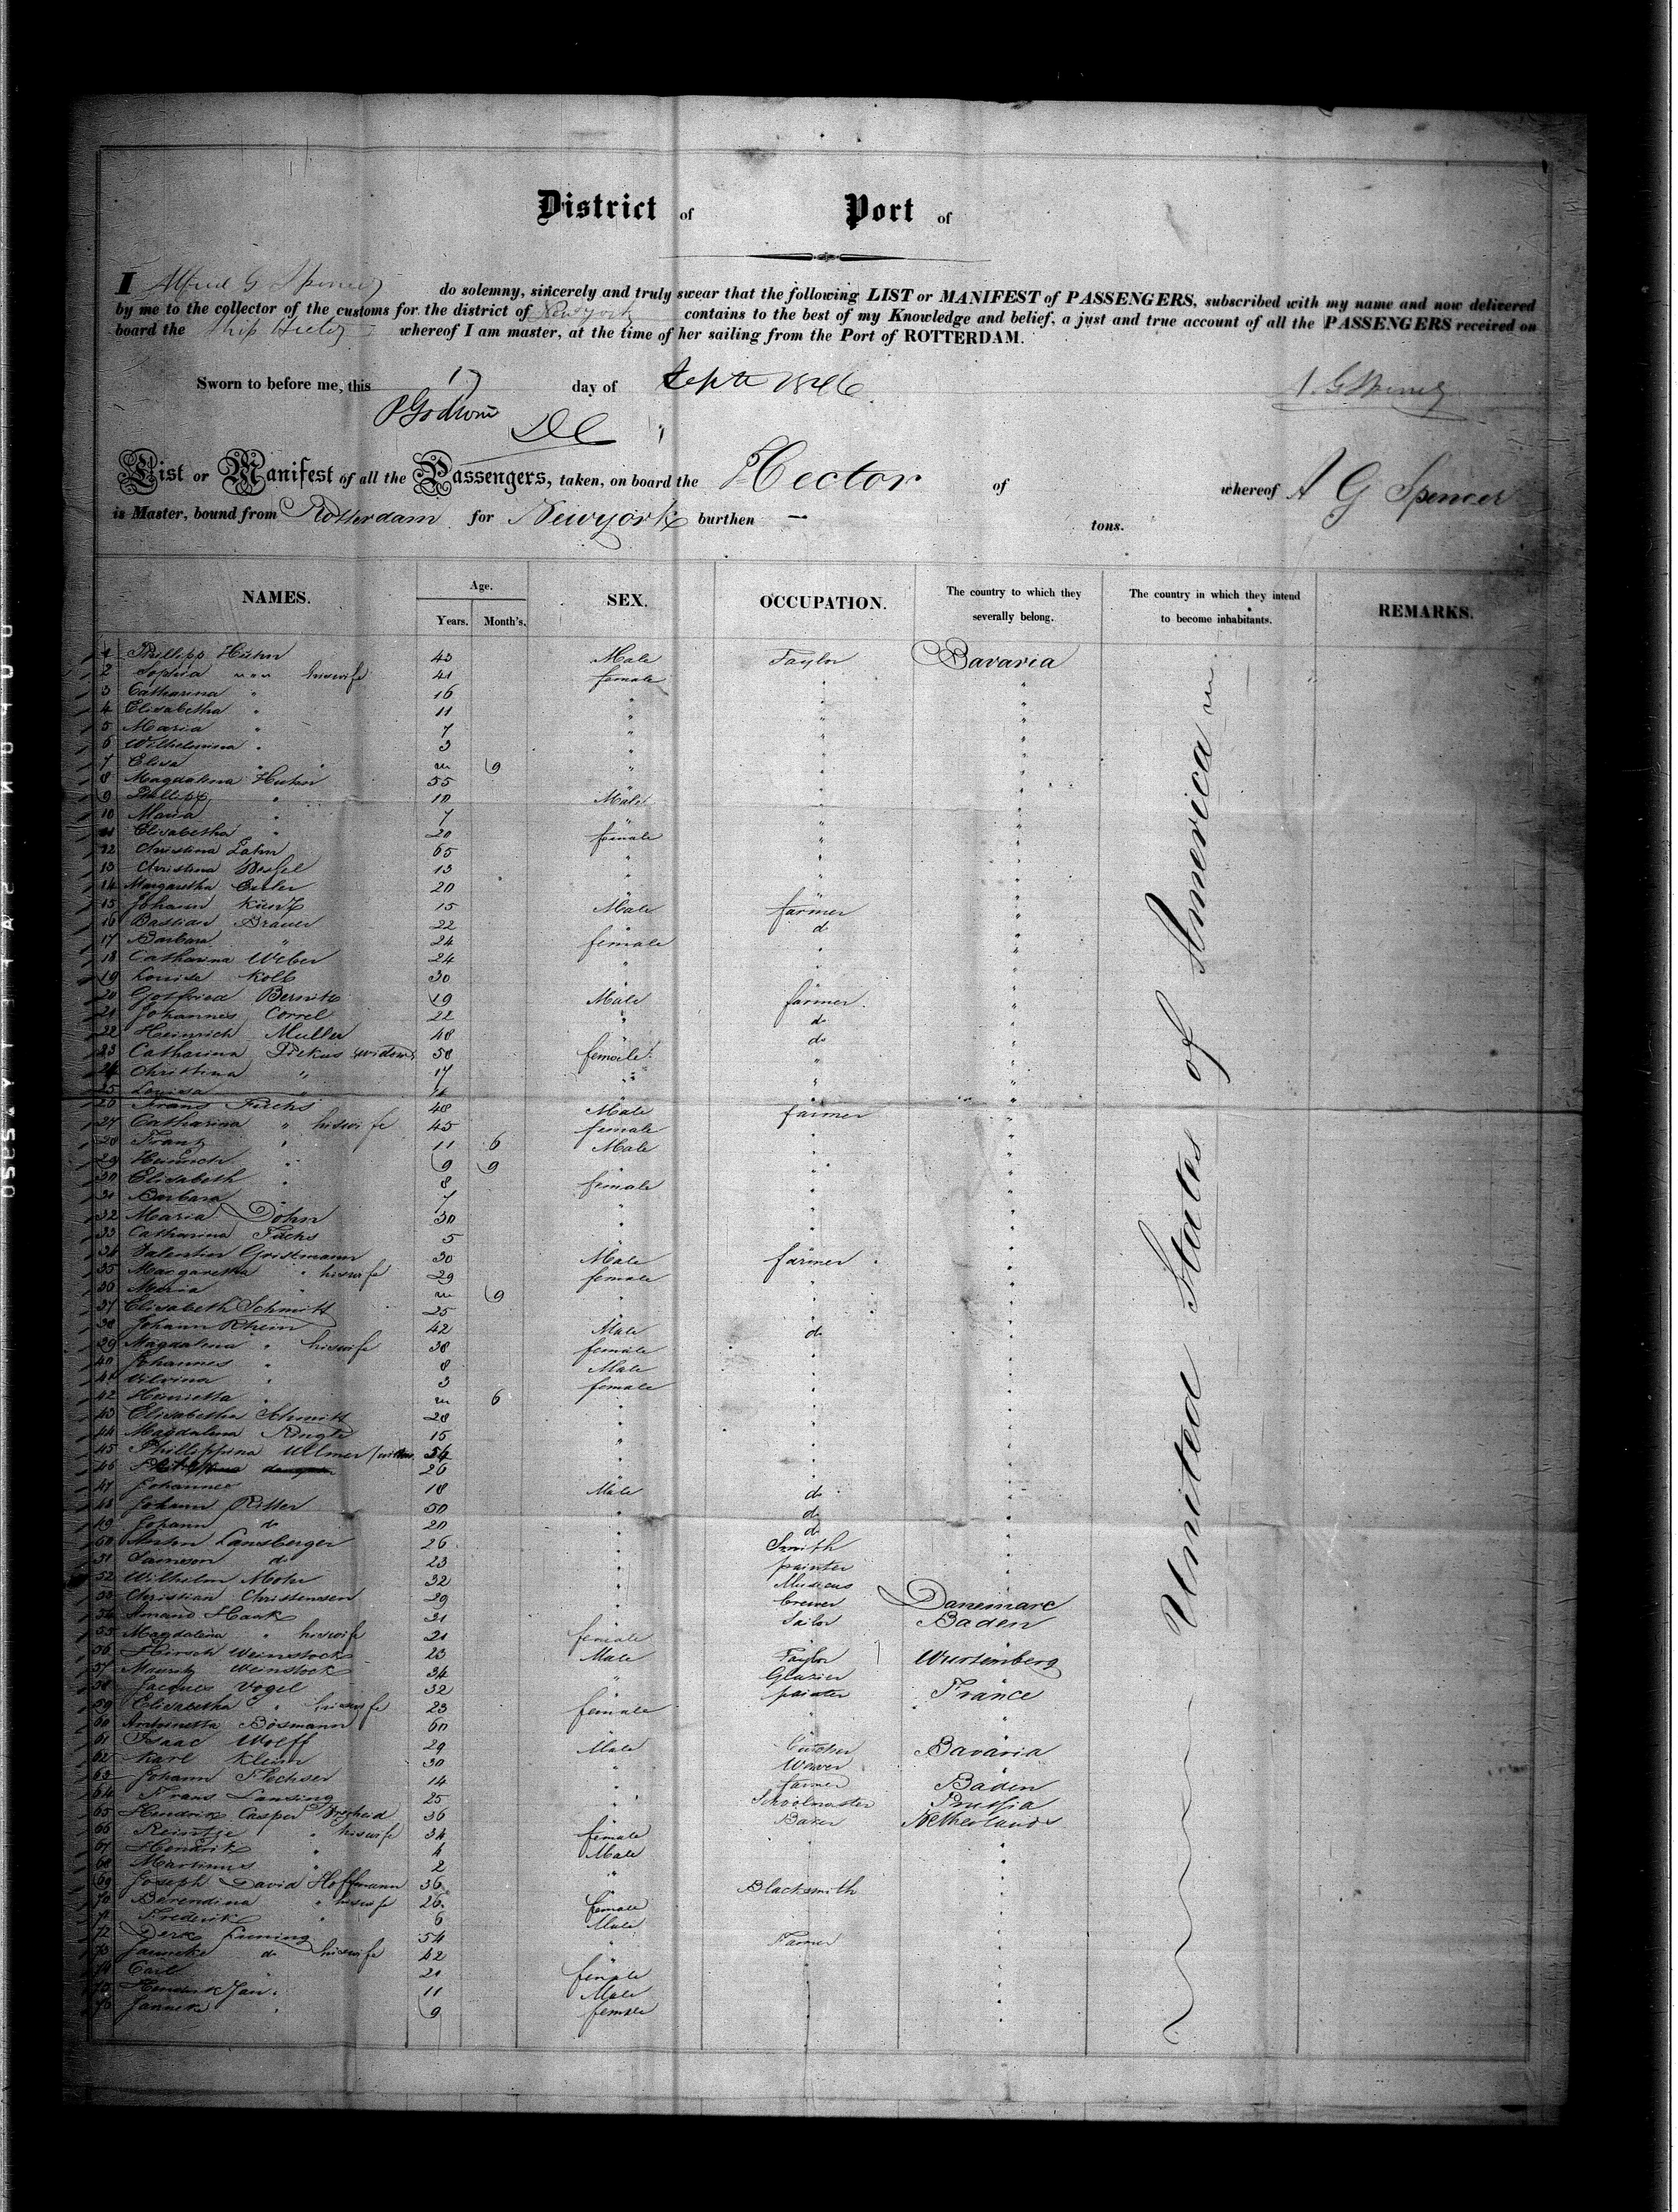 District of Port of
I Alfred G Spencer do solemny, sincerely and truly swear that the following LIST or MANIFEST of PASSENGERS, subscribed with my name and now delivered
by me to the collector of the customs for the district of New york contains to the best of my Knowledge and belief, a just and true account of all the PASSENGERS received on
board the Ship Hector whereof I am master, at the time of her sailing from the Port of ROTTERDAM.
Sworn to before me, this 17 day of Septr 1846 A. G Spencer
List or Manifest of all the Passengers, taken, on board the Hector of whereof A G Spencer
is Master, bound from Rotterdam for Newyork burthen — tons.
NAMES. Age. Years. Month's. SEX. OCCUPATION. The country to which they severally belong. The country in which they intend to become inhabitants. REMARKS.
United States of America
1 Phillipp Huhn 43 Male Taylor Bavaria
2 Sophia " " " hiswife 41 female " "
3 Catharina " 16 " " "
4 Elisabetha " 11 " " "
5 Maria " 7 " " "
6 Wilhelmina " 3 " " "
7 Elisa " 9 " " "
8 Magdalena Huhn 55 " " "
9 Phillipp " 10 Male " "
10 Maria " 7 " " "
11 Elisabetha " 20 female " "
12 Christina Lahn 65 " " "
13 Christina 13 " " "
14 Margaretha 20 " " "
15 Johann Kuntz 15 Male farmer "
16 Bastian Brauer 22 " do "
17 Barbara " 24 female " "
18 Catharina Weber 24 " " "
19 Louise Kolb 30 " " "
20 Gotfried 19 Male farmer "
21 Johannes Correl 22 " do "
22 Heinrich Muller 48 " do "
23 Catharina Dickus widow 58 female " "
24 Christina " 17 " " "
25 Louisa " " " "
26 Frans Fuchs 48 Male farmer "
27 Catharina " hiswife 45 female " "
28 Frantz " 11 6 Male " "
29 Heinrich " 9 9 " " "
30 Elisabeth " 8 female " "
31 Barbara " 7 " " "
32 Maria Dohn 30 " " "
33 Catharina Fuchs 5 " " "
34 Valentin Gristmann 30 Male farmer "
35 Margaretha " hiswife 29 female " "
36 Maria " 9 " " "
37 Elisabeth Schmitt 25 " " "
38 Johann Rhein 42 Male do "
39 Magdalena " hiswife 38 female " "
40 Johannes " 8 Male " "
41 " 3 female " "
42 Henrietta " 6 " " "
43 Elisabetha Schmitt 28 " " "
44 Magdalena 15 " " "
45 Phillippina Ullmer 54 " " "
46 26 " " "
47 Johannes 18 Male do "
48 Johann Ritter 50 " do "
49 Johann do 20 " do "
50 Landsberger 26 " Smith "
51 Samson do 23 " painter "
52 Wilhelm Mohr 32 " Musicus "
53 Christian Christensen 29 " brewer Danemarc
54 Amand Haak 31 " Sailor Baden
55 Magdalena " hiswife 21 female
56 Hirsch Weinstock 23 Male Taylor Wurtenberg
57 Mauritz Weinstock 34 " Glazier
58 Jacques Vogel 32 painter France
59 Elisabetha " hiswife 23 female " "
60 Antoinetta Bosmann 60
61 Isaac Wolff 29 Male butcher Bavaria
62 Karl Klein 30 " Wever "
63 Johann Flechser 14 " farmer Baden
64 Frans Lansing 25 " Schoolmaster Prussia
65 Hendrik Casper 36 Baker Netherlands
66 Reintje " hiswife 34 female " "
67 Hendrik " 4 Male " "
68 Martinus " 2 " "
69 Joseph David Hoffmann 36 Blacksmith "
70 Berendina " hiswife 26 female "
71 Frederik " 6 Male "
72 Derk Luning 54 " Farmer "
73 Janneke do hiswife 42 "
74 Carl 21 female "
75 Hendrik Jan 11 Male "
76 Janneke 9 female "